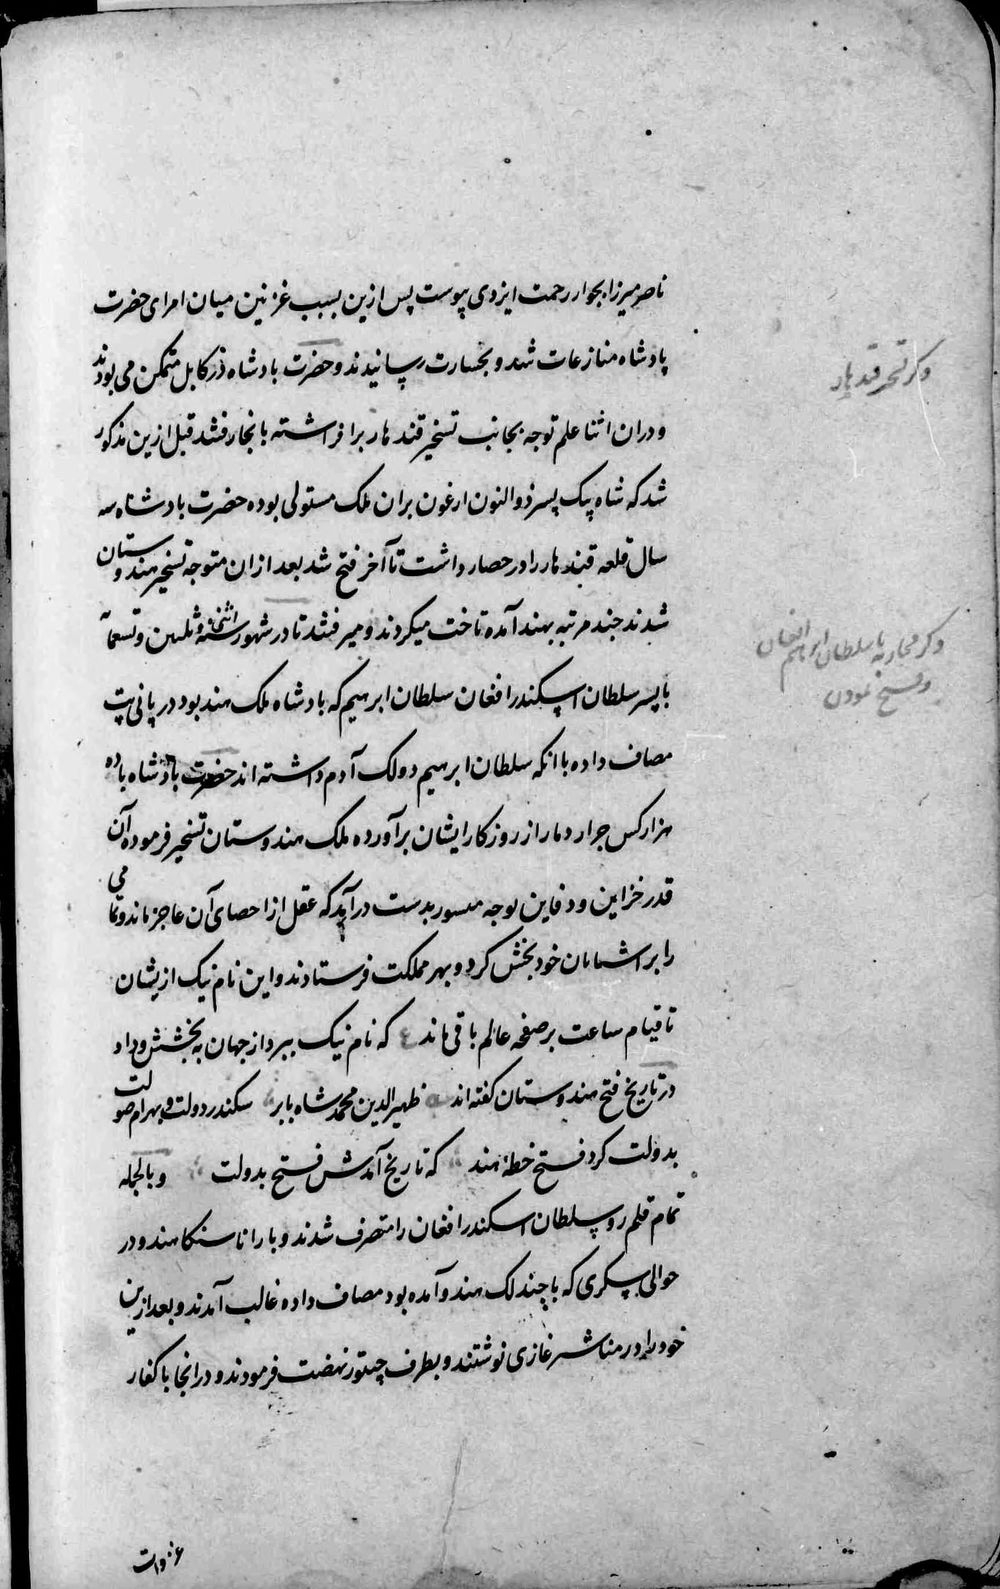 ناصر میرزا بجوار رحمت ایزدی پیوست پس ازین بسبب غزنین میان امرای حضرت
پادشاه منازعات شد و بخسارت رسانیدند و حضرت بادشاه در کابل متمکن می بودند
ذکر تسخیر قندهار
و دران اثنا علم توجه بجانب تسخیر قندهار برافراشته بانجا رفتند قبل ازین مذکور
شد که شاه بیک پسر ذوالنون ارغون بران ملک مستولی بوده حضرت بادشاه سه
سال قلعه قندهار را در حصار داشت تا آخر فتح شد بعد ازان متوجه تسخیر هندوستان
شدند چند مرتبه بهند آمده تاخت میکردند و میرفتند تا در شهور سنه اثنی و ثلثین و تسعمأ
ذکر محاربه با سلطان ابراهیم افغان
و فتح نمودن
با پسر سلطان اسکندر افغان سلطان ابرهیم که بادشاه ملک هند بود در پانی پت
مصاف داده با انکه سلطان ابرهیم دولک آدم داشته اند حضرت بادشاه با ده
هزار کس جرار دمار از روزکار ایشان برآورده ملک هندوستان تسخیر فرموده آن
قدر خزاین و دفاین بدست درآید که عقل از احصای آن عاجز ماند و تمامی
را بر اشنایان خود بخش کرد و بهر مملکت فرستادند و این نام نیک ازیشان
تا قیام ساعت بر صفحه عالم باقی ماند ع که نام نیک ببرد از جهان به بخشش و داد
در تاریخ فتح هندوستان کفته اند ظهیرالدین محمد شاه بابر سکندر دولت و بهرام صولت
بدولت کرد فتح خطهٔ هند که تاریخ آمدش فتح بدولت و بالجمله
تمام قلمرو سلطان اسکندر افغان را متصرف شدند و با رانا سنکا هند و در
حوالی سیکری که با چند لک هندو آمده بود مصاف داده غالب آمدند و بعد ازین
خود را در مناشیر غازی نوشتند و بطرف چیتور نهضت فرمودند و درانجا با کفار
غزوات